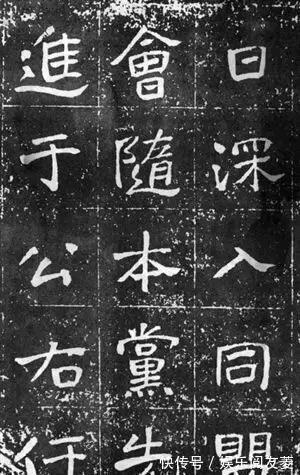 日深入同盟
會隨本黨先
進于公右任
快传号/娱乐闺友菱